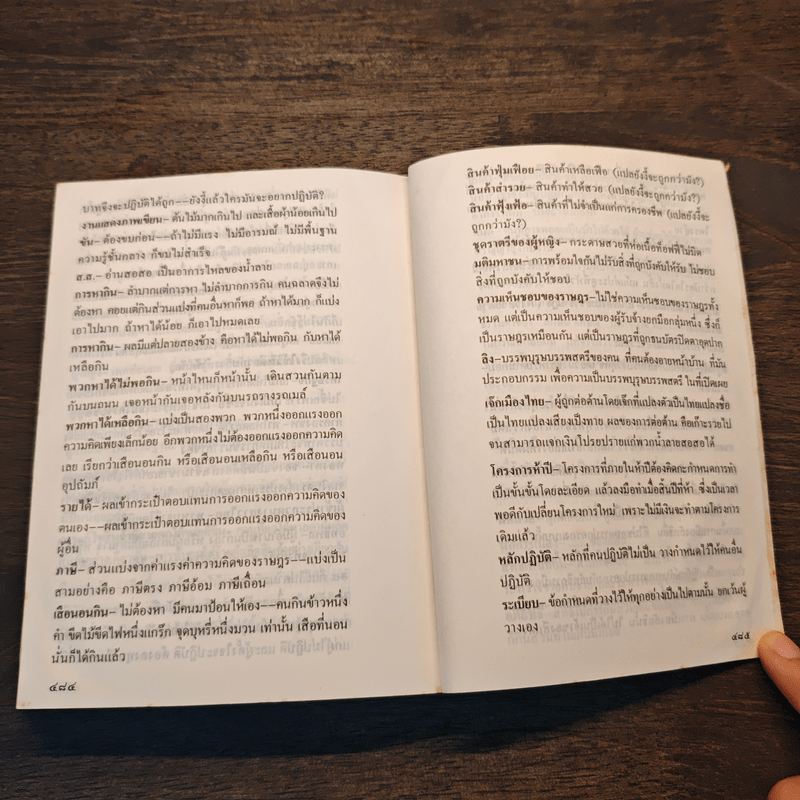 บาทจึงจะปฏิบัติได้ถูก--ยังงี้แล้วใครมันจะอยากปฏิบัติ?
งานแสดงภาพเขียน- ต้นไม้มากเกินไป และเสื้อผ้าน้อยเกินไป
ขัน- ต้องขบก่อน--ถ้าไม่มีแรง ไม่มีอารมณ์ ไม่มีพื้นฐาน
ความรู้ชั้นกลาง ก็ขบไม่สำเร็จ
ส.ส.- อ่านสอสอ เป็นอาการไหลของน้ำลาย
การหากิน- ลำบากแต่การหา ไม่ลำบากการกิน คนฉลาดจึงไม่
ต้องหา คอยแต่กินส่วนแบ่งที่คนอื่นหาก็พอ ถ้าหาได้มาก ก็แบ่ง
เอาไปมาก ถ้าหาได้น้อย ก็เอาไปหมดเลย
การหากิน- ผลมีแต่ปลายสองข้าง คือหาได้ไม่พอกิน กับหาได้
เหลือกิน
พวกหาได้ไม่พอกิน- หน้าไหนก็หน้านั้น เดินสวนกันตาม
กันบนถนน เจอหน้ากันเจอหลังกันบนรถรางรถเมล์
พวกหาได้เหลือกิน- แบ่งเป็นสองพวก พวกหนึ่งออกแรงออก
ความคิดเพียงเล็กน้อย อีกพวกหนึ่งไม่ต้องออกแรงออกความคิด
เลย เรียกว่าเสือนอนกิน หรือเสือนอนเหลือกิน หรือเสือนอน
อุปถัมภ์
รายได้- ผลเข้ากระเป๋าตอบแทนการออกแรงออกความคิดของ
ตนเอง--ผลเข้ากระเป๋าตอบแทนการออกแรงออกความคิดของ
ผู้อื่น
ภาษี- ส่วนแบ่งจากค่าแรงค่าความคิดของราษฎร--แบ่งเป็น
สามอย่างคือ ภาษีตรง ภาษีอ้อม ภาษีเถื่อน
เสือนอนกิน- ไม่ต้องหา มีคนมาป้อนให้เอง--คนกินข้าวหนึ่ง
คำ ขีดไม้ขีดไฟหนึ่งแกร๊ก จุดบุหรี่หนึ่งมวน เท่านั้น เสือที่นอน
นั่นก็ได้กินแล้ว
๔๘๔
สินค้าฟุ่มเฟือย- สินค้าเหลือเฟือ (แปลยังงี้จะถูกกว่ามัง?)
สินค้าสำรวย- สินค้าทำให้สวย (แปลยังงี้จะถูกกว่ามัง?)
สินค้าฟุ้งเฟ้อ- สินค้าที่ไม่จำเป็นแก่การครองชีพ (แปลยังงี้จะ
ถูกกว่ามัง?)
ชุดราตรีของผู้หญิง- กระดาษสวยที่ห่อเนื้อท็อฟฟี่ไม่มิด
มติมหาชน- การพร้อมใจกันไม่รับสิ่งที่ถูกบังคับให้รับ ไม่ชอบ
สิ่งที่ถูกบังคับให้ชอบ
ความเห็นชอบของราษฎร-ไม่ใช่ความเห็นชอบของราษฎรทั้ง
หมด แต่เป็นความเห็นชอบของผู้รับจ้างยกมือกลุ่มหนึ่ง ซึ่งก็
เป็นราษฎรเหมือนกัน แต่เป็นราษฎรที่ถูกธนบัตรปิดตาอุดปาก
ลิง-บรรพบุรุษบรรพสตรีของคน ที่คนต้องอายหน้าบ้าน ที่มัน
ประกอบกรรม เพื่อความเป็นบรรพบุรุษบรรพสตรี ในที่เปิดเผย
เจ๊กเมืองไทย- ผู้ถูกต่อต้านโดยเจ๊กที่แปลงตัวเป็นไทยแปลงชื่อ
เป็นไทยแปลงเสียงเป็งทาย ผลของการต่อต้าน คือเก๊าะรวยไป
จนสามารถแจกเงินโปรยปรายแก่พวกน้ำลายสอสอได้
โครงการห้าปี- โครงการที่ภายในห้าปีต้องคิดกะกำหนดการทำ
เป็นขั้นขั้นโดยละเอียด แล้วลงมือทำเมื่อสิ้นปีที่ห้า ซึ่งเป็นเวลา
พอดีกับเปลี่ยนโครงการใหม่ เพราะไม่มีเงินจะทำตามโครงการ
เดิมแล้ว
หลักปฏิบัติ- หลักที่คนปฏิบัติไม่เป็น วางกำหนดไว้ให้คนอื่น
ปฏิบัติ
ระเบียบ- ข้อกำหนดที่วางไว้ให้ทุกอย่างเป็นไปตามนั้น ยกเว้นผู้
วางเอง
๔๘๕